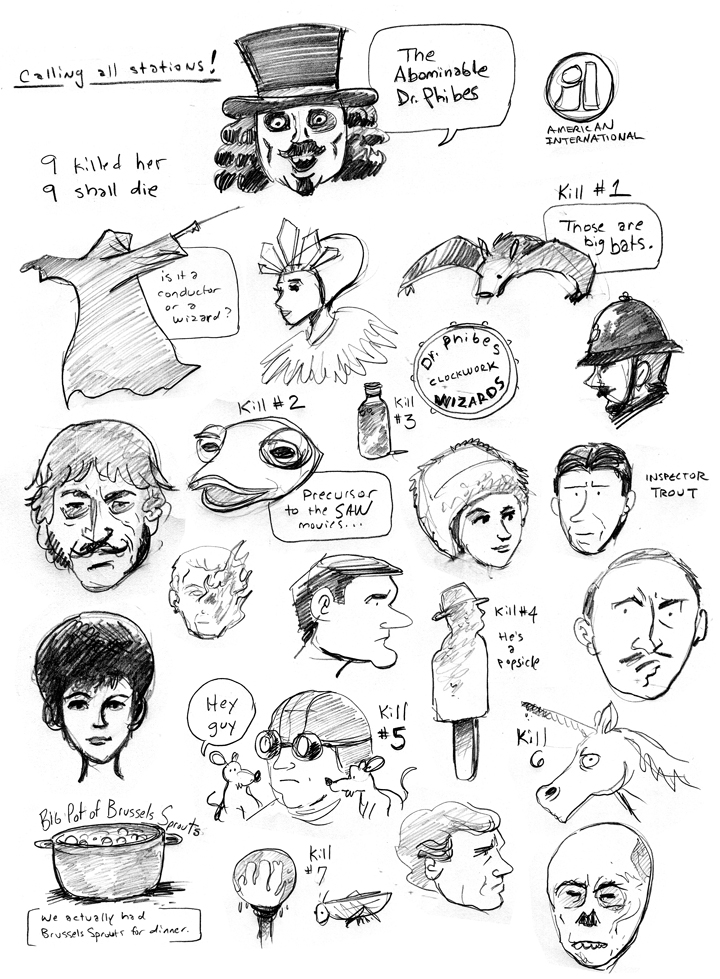 Calling all stations!
The
Abominable
Dr. Phibes
AMERICAN
INTERNATIONAL
9 killed her
9 shall die
Kill #1
Those are
big bats.
is it a
conductor
or a
wizard?
Dr. Phibes
CLOCKWORK
WIZARDS
Kill #2
Kill
#3
Precursor
to the SAW
movies...
INSPECTOR
TROUT
Kill #4
He's
a
popsicle
Hey
guy
Kill
#5
Kill
6
Big Pot of Brussels Sprouts
We actually had
Brussels Sprouts for dinner.
Kill
#7